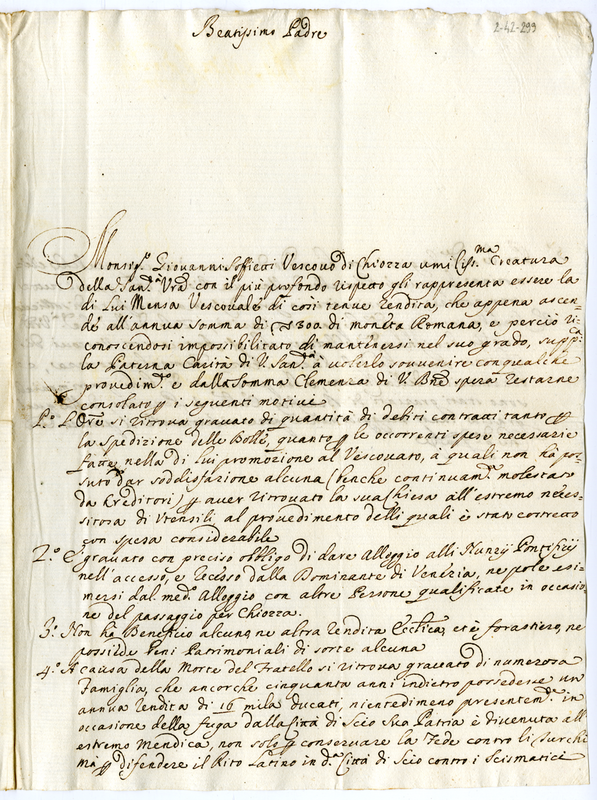 Beatissimo Padre
2-42-299
Monsig.r Giovanni Soffietti Vescovo di Chiozza umiliss.ma Creatura
della San.tà Vrã con il più profondo rispetto gli rappresenta essere la
di Lui Mensa Vescovale di così tenue rendita, che appena ascen
de all'annua somma di 300 di moneta Romana, e perciò ri
conoscendosi impossibilitato di mantenersi nel suo grado, supp.ca
la Paterna Carità di V. San.tà à volerlo souvenire con qualche
provedim.to e dalla Somma Clemenza di V. Bne spera restarne
consolato p i seguenti motivi
P.o si ritrova gravato di quantità di debiti contratti tanto p
la spedizione delle Bolle, quanto p le occorrenti spese necessarie
fatte nella di lui promozione al Vescovato, à quali non hà po-
suto dar sodisfazione alcuna (benche continuam.te molestato
da Creditori) p aver ritrovato la sua Chiesa all'estremo neces-
sitosa di Utensili al provedimento delli quali è stato costretto
con spesa considerabile
2.o E gravato con preciso obbligo di dare Alloggio alli Nunzij Pontificij
nell'accesso, e recesso dalla Dominante di Venezia, ne pole esi-
mersi dal med.o Alloggio con altre Persone qualificate in occasio
ne del passaggio per Chiozza.
3.o Non ha Beneficio alcuno, ne altra rendita Ecclica, et è forastiero, ne
possiede Beni Patrimoniali di sorte alcuna
4.o A causa della Morte del Fratello si ritrova gravato di numerosa
Famiglia, che ancorche cinquanta anni indietro possedesse un
annua rendita di 16 mila ducati, nientedimeno presentem.te in
occasione della fuga dalla Città di Scio Sua Patria è divenuta all'
estremo Mendica, non solo p conservare la Fede contro li Turchi
ma p difendere il Rito Latino in d.a Città di Scio contro i Scismatici